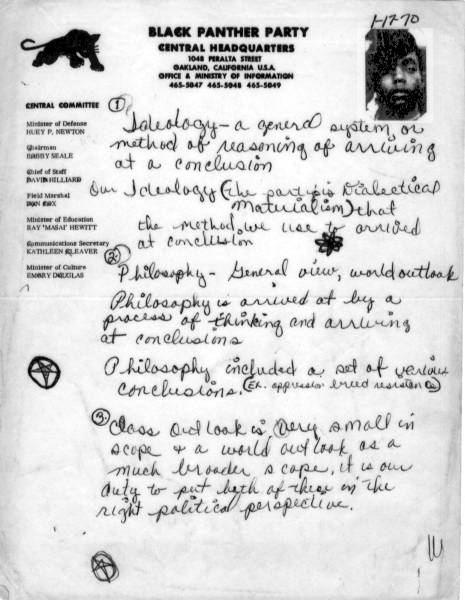 1-17-70
BLACK PANTHER PARTY
CENTRAL HEADQUARTERS
1048 PERALTA STREET
OAKLAND, CALIFORNIA U.S.A.
OFFICE & MINISTRY OF INFORMATION
465-5047 465-5048 465-5049
CENTRAL COMMITTEE
Minister of Defense
HUEY P. NEWTON
Chairman
BOBBY SEALE
Chief of Staff
DAVID HILLIARD
Field Marshal
DON COX
Minister of Education
RAY "MASAI" HEWITT
Communications Secretary
KATHLEEN CLEAVER
Minister of Culture
EMORY DOUGLAS
1 Ideology - a general system, or
method of reasoning of arriving
at a conclusion
Our Ideology (the party's is Dialectical
Materialism) that
the method, we use to arrived
at conclusion
2. Philosophy - General view, world outlook
Philosophy is arrived at by a
process of thinking and arriving
at conclusions
Philosophy included a set of various
conclusions. (Ex. oppression breed resistance)
3. Class outlook is very small in
scope & a world outlook as a
much broader scope, it is our
duty to put both of these in the
right political perspective.